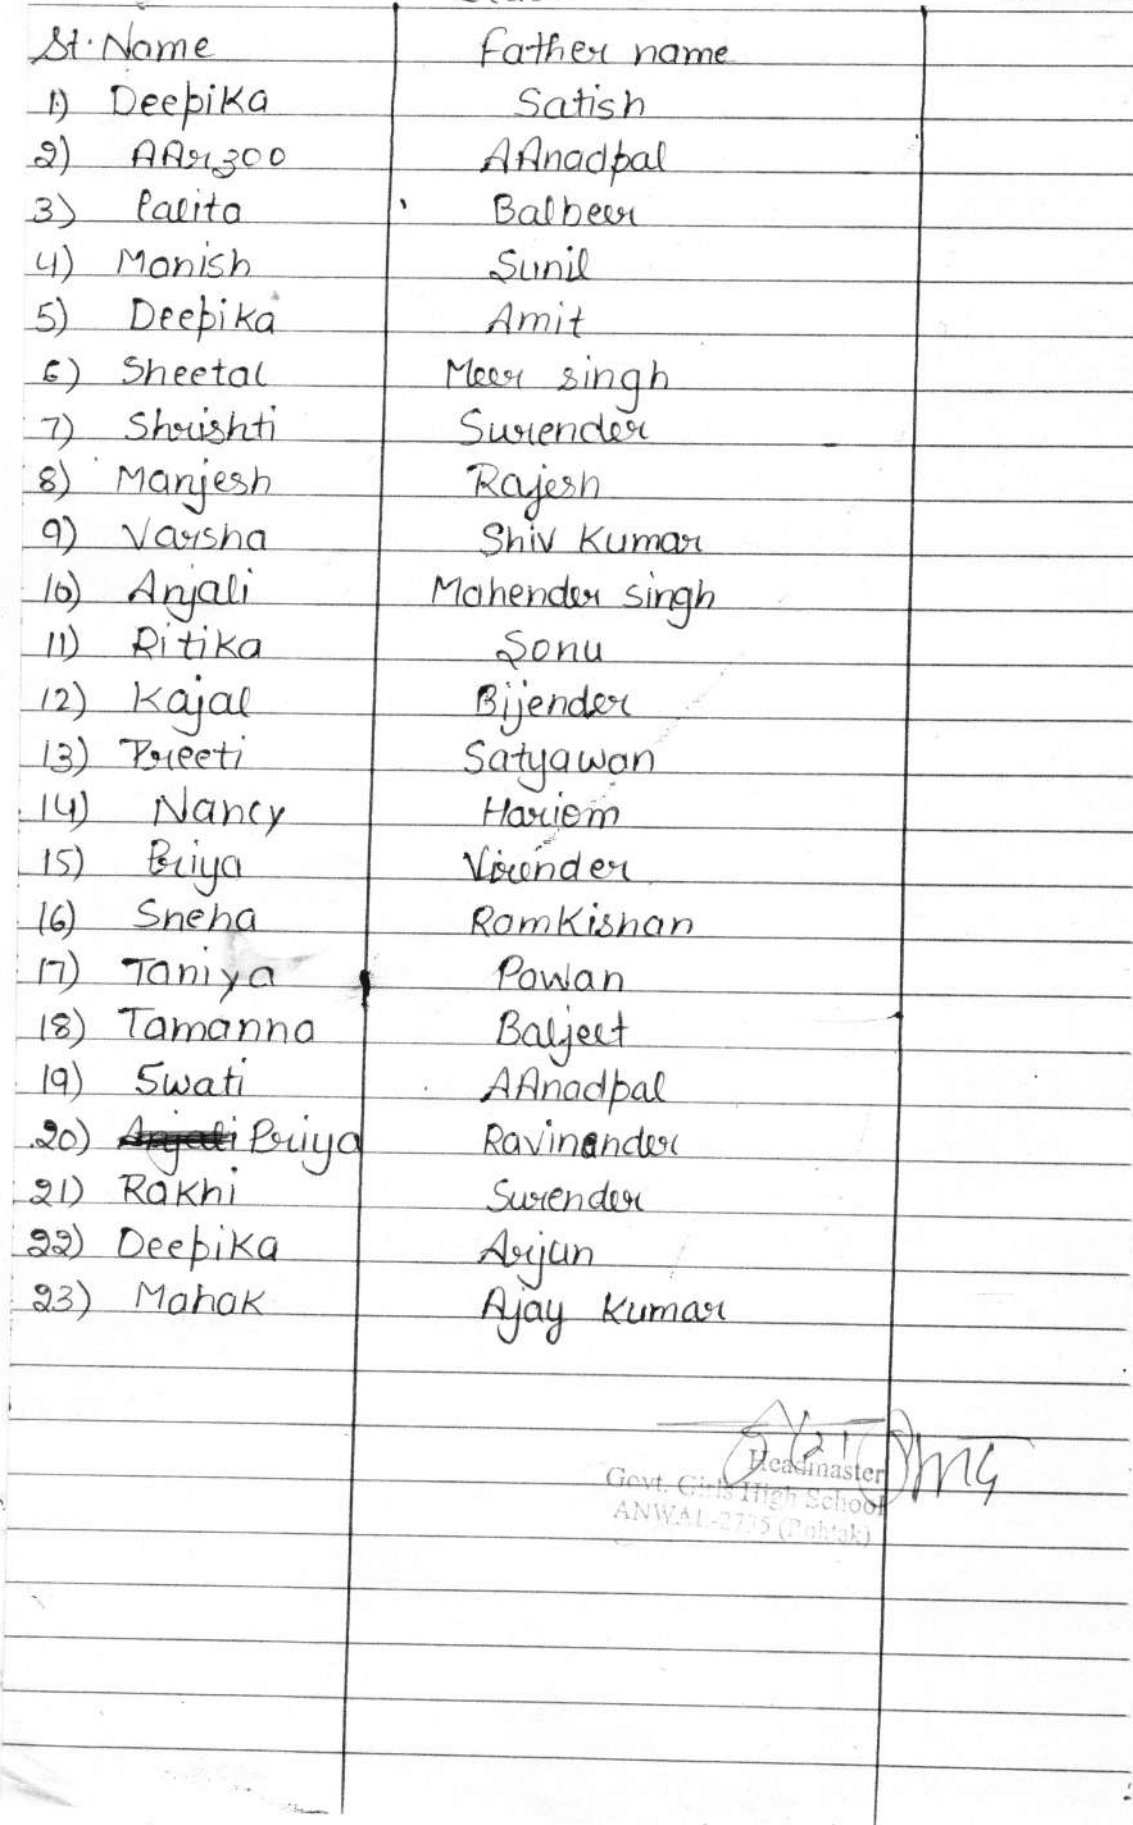 St. Name Father name
1) Deepika Satish
2) AArzoo AAnadpal
3) Palita Balbeer
4) Manish Sunil
5) Deepika Amit
6) Sheetal Meer singh
7) Shrishti Surender
8) Manjesh Rajesh
9) Varsha Shiv Kumar
10) Anjali Mahender singh
11) Ritika Sonu
12) Kajal Bijender
13) Preeti Satyawan
14) Nancy Hariom
15) Priya Virender
16) Sneha RamKishan
17) Taniya Pawan
18) Tamanna Baljeet
19) Swati AAnadpal
20) Priya Ravinander
21) Rakhi Surender
22) Deepika Arjun
23) Mahak Ajay Kumar
Headmaster
Govt. Girls High School
ANWAL-2735 (Rohtak)